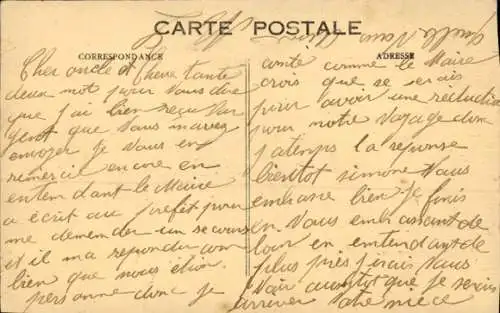 CARTE POSTALE
CORRESPONDANCE
ADRESSE
Cher oncle et Chere tante
deux mot pour vous dire
que j'ai bien reçu l'ar
gent que vous mavez
envoyer je vous en
remercie encore en
entendant le Maire
a écrit au prefit pour
me demender un secours
et il ma repondu com
bien que nous étion
personne donc je
comte comme le Maire
crois que se serais
pour avoir une réduction
pour notre voyage donc
j'atemps la reponse
bientot simone vous
embrasse bien je finis
en vous embrassant de
loin en entendant de
plus près j'irais vous
voir aussitot que je serais
arriver votre niece